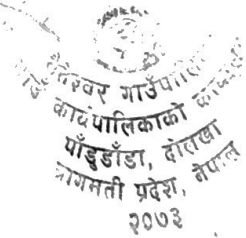 गाउँपालिका
कार्यपालिकाको
पाँडुडाँडा, दोलखा
बागमती प्रदेश, नेपाल
२०७३